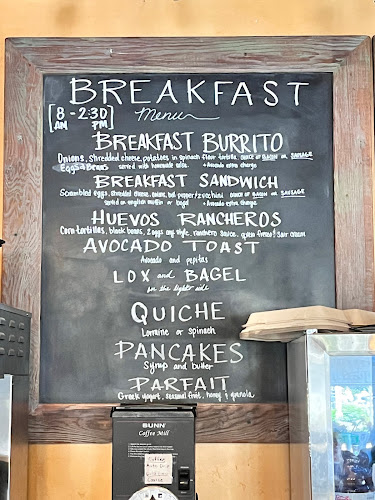 BREAKFAST
Menu
[8 - 2:30]
AM PM
BREAKFAST BURRITO
Onions, shredded cheese, potatoes in spinach flour tortilla, CHOICE of BACON or SAUSAGE
Eggs & Beans served with homemade salsa. + Avocado extra charge
BREAKFAST SANDWICH
Scrambled eggs, shredded cheese, onion, bell pepper, zucchini CHOICE of BACON or SAUSAGE
served on english muffin or bagel + Avocado extra charge
HUEVOS RANCHEROS
Corn tortillas, black beans, 2 eggs any style, ranchero sauce, queso fresco & sour cream
AVOCADO TOAST
Avocado and pepitas
LOX and BAGEL
on the lighter side
QUICHE
Lorraine or spinach
PANCAKES
Syrup and butter
PARFAIT
Greek yogurt, seasonal fruit, honey & granola
BUNN
Coffee Mill
Coffee